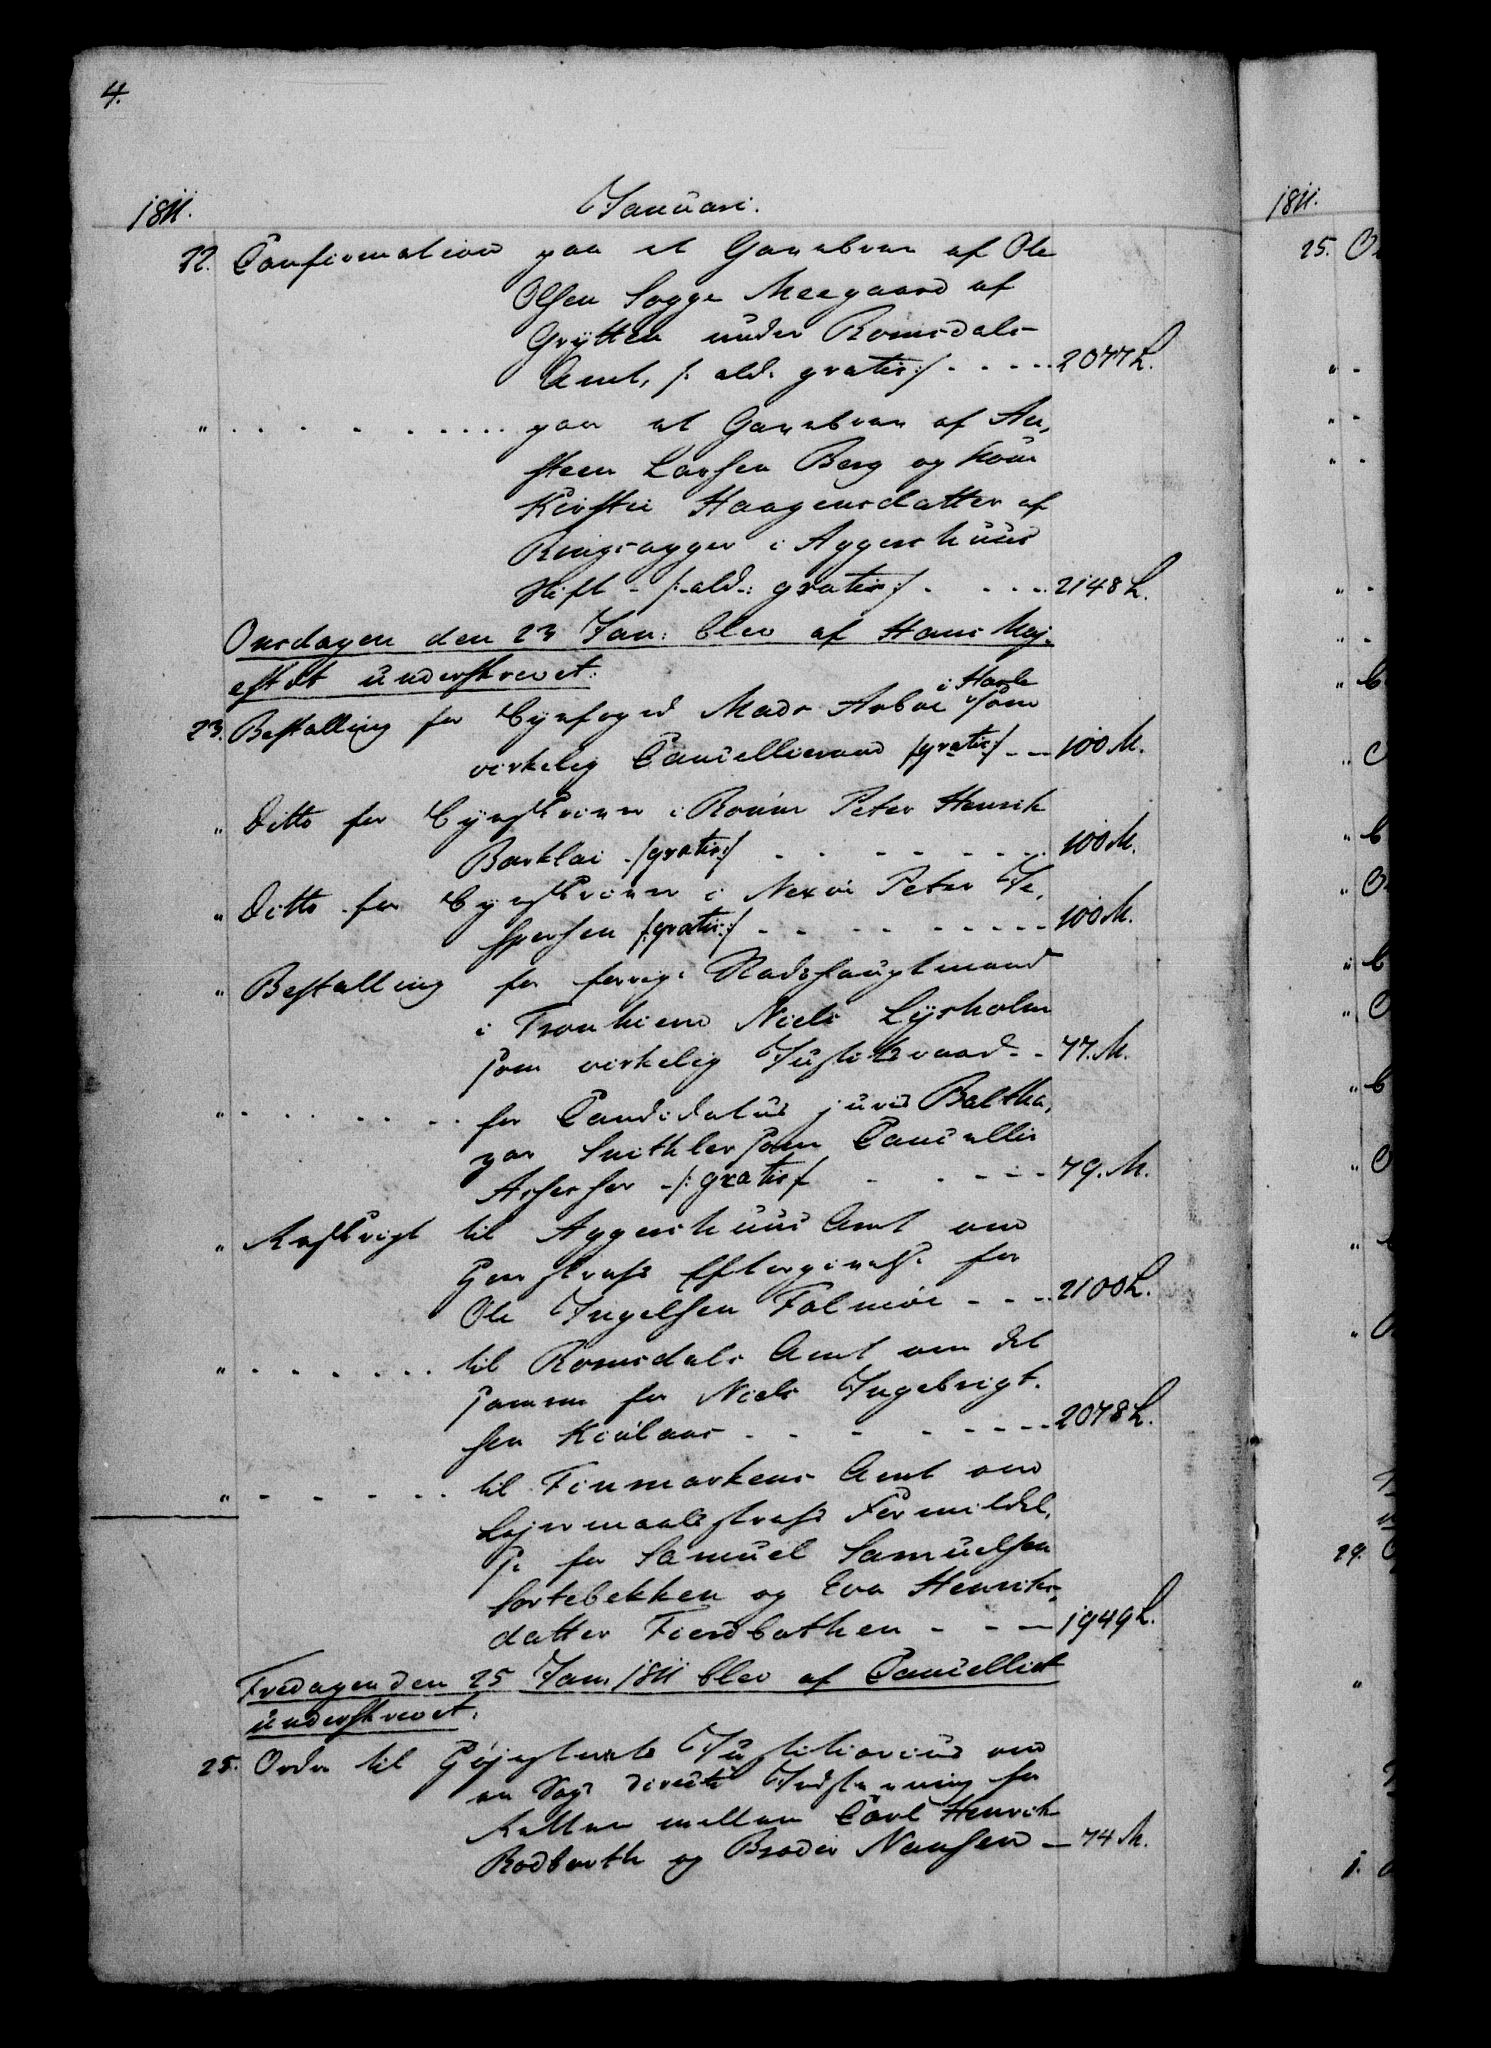 4.
1811. Januari.
22. Confirmation paa et Gavebrev af Ole
Olsen Sogge Meegaard af
Grytten under Romsdals
Amt, /: ald. gratis :/ - - - - 2077 L.
" . . . . . . . . paa et Gavebrev af Au-
steen Larsen Berg og Kone
Kirstie Haagensdatter af
Ringsagger i Aggershuus
Stift - /: ald.: gratis :/ - - - - 2148 L.
Onsdagen den 23 Jan: blev af Hans Maj-
estæt underskrevet:
i Hasle
23. Bestalling for Byefoged Mads Arboe som
virkelig Cancellieraad /gratis/ - - 100 M.
" Ditto for Byeskriver i Rønne Peter Henrik
Barklai /gratis:/ - - - - - - - 100 M.
" Ditto for Byeskriver i Nexöe Peter Je-
spersen /:gratis:/ - - - - - - - - 100 M.
" Bestalling for forrige Stadshauptmand
i Tronhiem Niels Lysholm
som virkelig Justitsraad - - 77. M.
" . . . . . . . for Candidatus juris Baltha-
zar Smithler som Cancellie
Assessor - /: gratis / - - - - 79. M.
" Reskript til Aggershuus Amt om
Gen strafs Eftergivelse for
Ole Ingelsen Falmöe - - - 2100 L.
" . . . . . . . til Romsdals Amt om det
samme for Niels Ingebrigt-
sen Kiölaas - - - - - - - 2078 L.
" - - - - - . til Finmarkens Amt om
Lejermaals strafs Formildel-
se for Samuel Samuelsen
Sortebekken og Eva Henriks-
datter Fierdbathen - - - 1949 L.
Fredagen den 25 Jan. 1811 blev af Cancelliet
underskrevet.
25. Ordre til Höjesterets Justitiarius om
en Sags directe Indstevning for
Retten mellem Carl Henrik
Rodbarth og Broder Nansen - 74 M.
1811.
25.
29.
1.